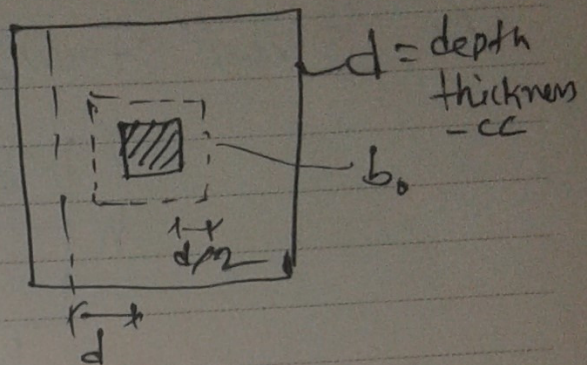 d = depth
thickness
- cc
b₀
d/2
d